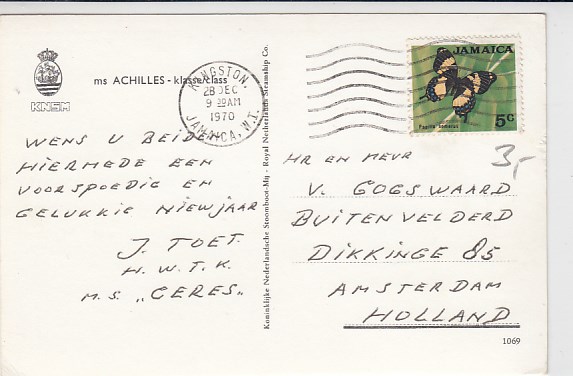 ms ACHILLES - klasse/class
KNSM
WENS U BEIDEN
HIERMEDE EEN
VOORSPOEDIG EN
GELUKKIG NIEWJAAR
J. TOET.
H.W.T.K.
M.S. „CERES”
Koninklijke Nederlandsche Stoomboot-Mij - Royal Netherlands Steamship Co.
KINGSTON.
28 DEC
9 30 AM
1970
JAMAICA, W.I.
JAMAICA
5c
3,-
HR EN MEVR
V. GOGSWAARD
BUITENVELDERD
DIKKINGE 85
AMSTERDAM
HOLLAND
1069